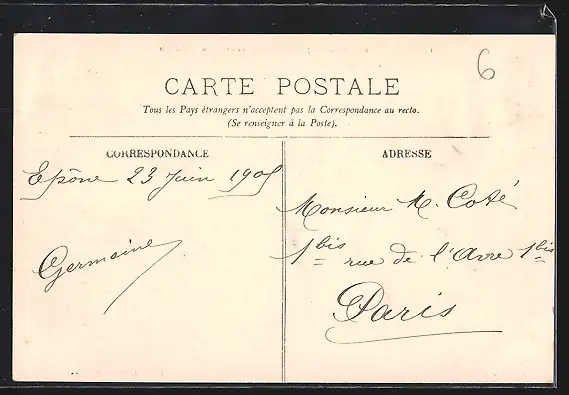 6
CARTE POSTALE
Tous les Pays étrangers n'acceptent pas la Correspondance au recto.
(Se renseigner à la Poste).
CORRESPONDANCE
ADRESSE
Epône 23 Juin 1905
Germaine
Monsieur M. Coté
1bis rue de l'Avre 1bis
Paris